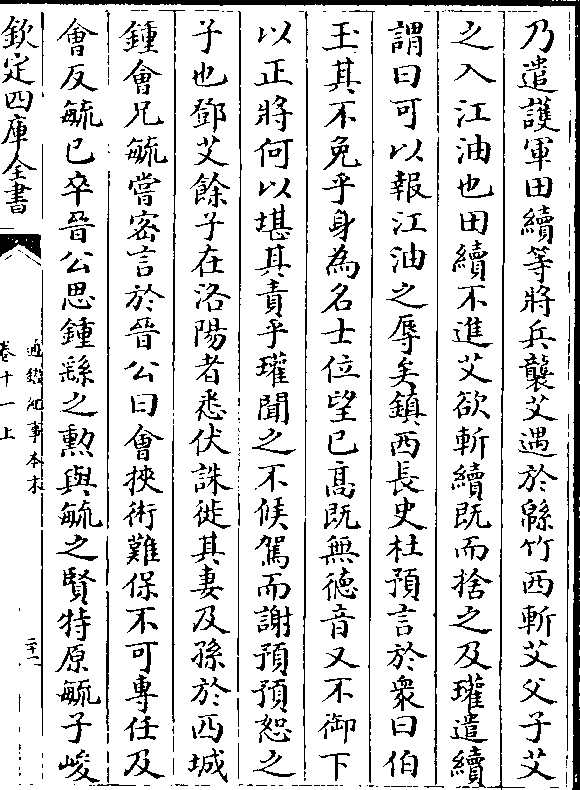 乃遣護軍田續等將兵襲艾遇於緜竹西斬艾父子艾
之入江油也田續不進艾欲斬續既而捨之及瓘遣續
謂曰可以報江油之辱矣鎮西長史杜預言於衆曰伯
玉其不免乎身為名士位望已髙既無徳音又不御下
以正將何以堪其責乎瓘聞之不候駕而謝預預恕之
子也鄧艾餘子在洛陽者悉伏誅徙其妻及孫於西城
鍾會兄毓嘗密言於晉公曰會挾術難保不可專任及
會反毓已卒晉公思鍾繇之勲與毓之賢特原毓子峻
欽定四庫全書
通鑑紀事本末
卷十一上